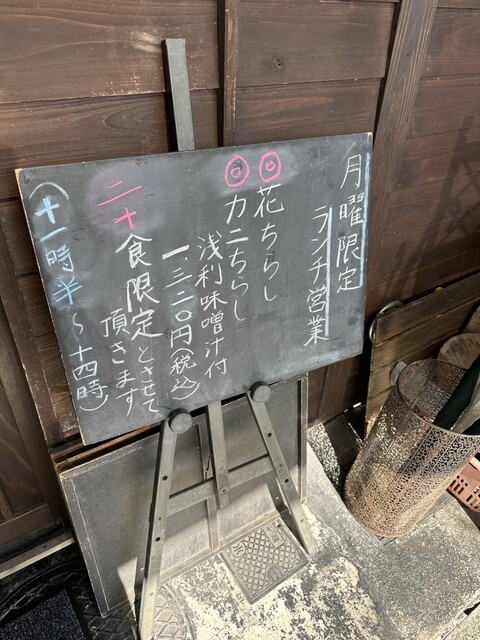 月曜限定
ランチ営業
◎花ちらし
◎カニちらし
浅利味噌汁付
一、三二〇円(税込)
二十食限定とさせて
頂きます
(十一時半〜十四時)